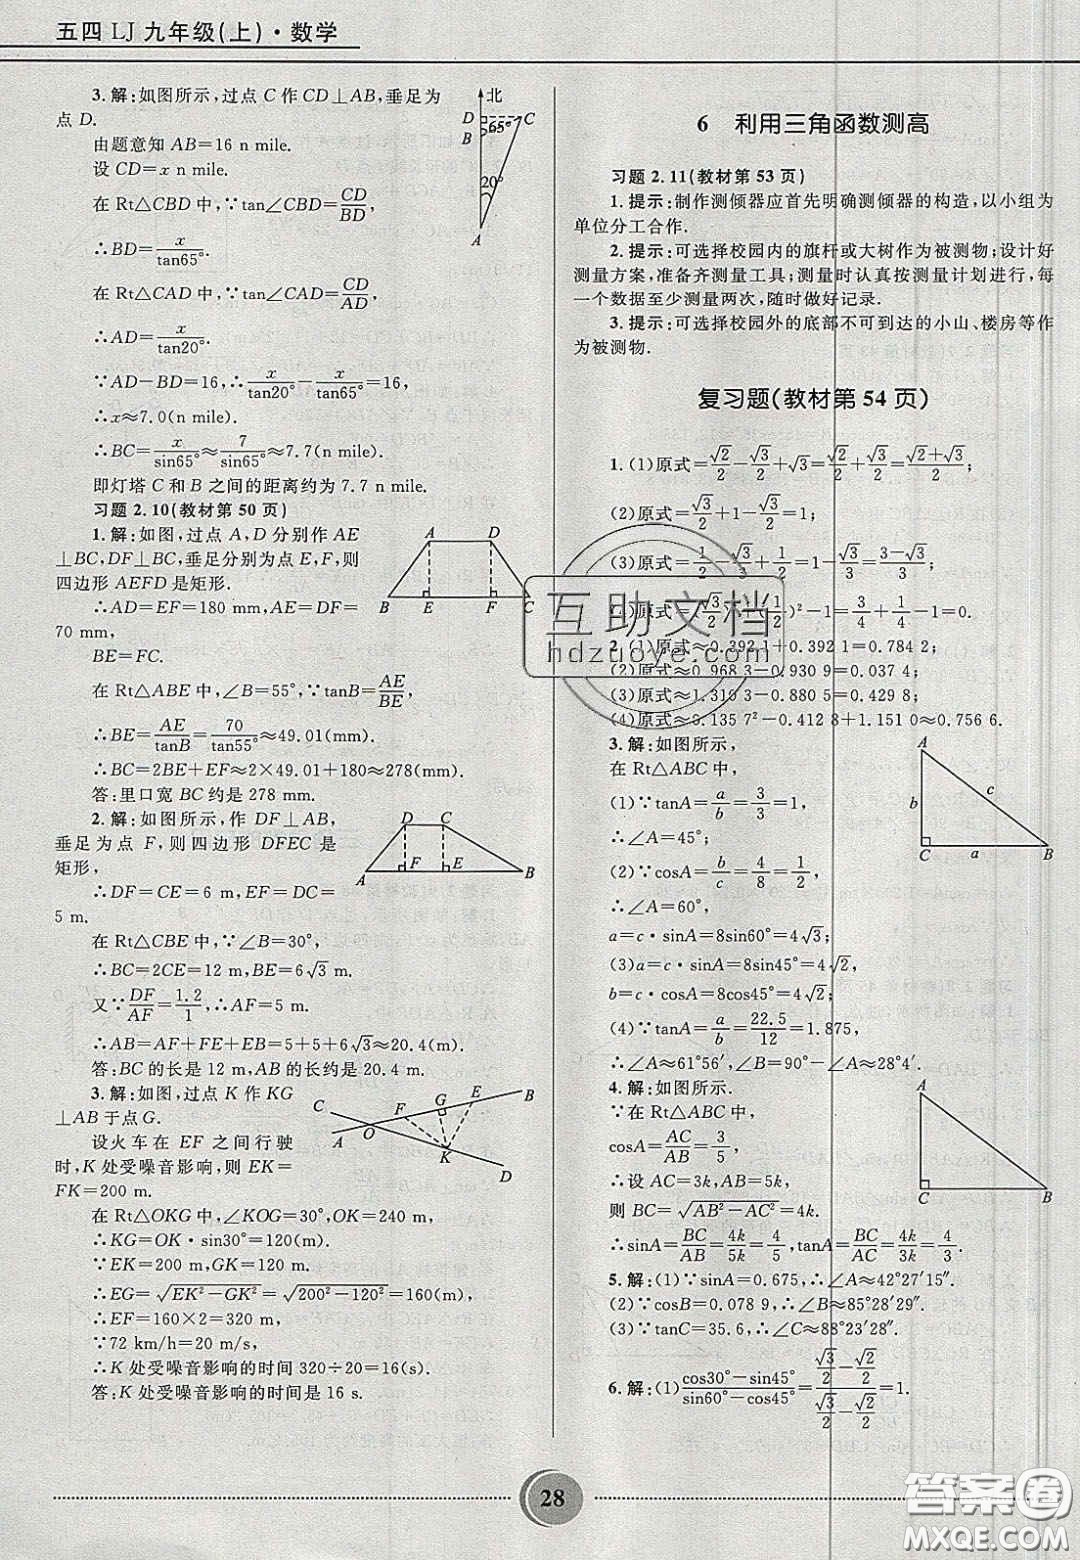 五四 LJ 九年级(上)·数学
3.解:如图所示,过点 C 作 CD⊥AB,垂足为
点 D.
由题意知 AB=16 n mile.
设 CD=x n mile.
在 Rt△CBD 中,∵tan∠CBD=CD/BD,
∴BD=x/tan65°.
在 Rt△CAD 中,∵tan∠CAD=CD/AD,
∴AD=x/tan20°.
∵AD-BD=16,∴x/tan20°-x/tan65°=16,
∴x≈7.0(n mile).
∴BC=x/sin65°≈7/sin65°≈7.7(n mile).
即灯塔 C 和 B 之间的距离约为 7.7 n mile.
北
D C
B 65°
20°
A
习题 2.10(教材第 50 页)
1.解:如图,过点 A,D 分别作 AE
⊥BC,DF⊥BC,垂足分别为点 E,F,则
四边形 AEFD 是矩形.
∴AD=EF=180 mm,AE=DF=
70 mm,
BE=FC.
在 Rt△ABE 中,∠B=55°,∵tanB=AE/BE,
∴BE=AE/tanB=70/tan55°≈49.01(mm).
∴BC=2BE+EF≈2×49.01+180≈278(mm).
答:里口宽 BC 约是 278 mm.
A D
B E F C
2.解:如图所示,作 DF⊥AB,
垂足为点 F,则四边形 DFEC 是
矩形,
∴DF=CE=6 m,EF=DC=
5 m.
在 Rt△CBE 中,∵∠B=30°,
∴BC=2CE=12 m,BE=6√3 m.
又∵DF/AF=1.2/1,∴AF=5 m.
∴AB=AF+FE+BE=5+5+6√3≈20.4(m).
答:BC 的长是 12 m,AB 的长约是 20.4 m.
D C
A F E B
3.解:如图,过点 K 作 KG
⊥AB 于点 G.
设火车在 EF 之间行驶
时,K 处受噪音影响,则 EK=
FK=200 m.
在 Rt△OKG 中,∠KOG=30°,OK=240 m,
∴KG=OK·sin30°=120(m).
∵EK=200 m,GK=120 m,
∴EG=√(EK²-GK²)=√(200²-120²)=160(m).
∴EF=160×2=320 m,
∵72 km/h=20 m/s,
∴K 处受噪音影响的时间 320÷20=16(s).
答:K 处受噪音影响的时间是 16 s.
C F G E B
A O K D
6 利用三角函数测高
习题 2.11(教材第 53 页)
1.提示:制作测倾器应首先明确测倾器的构造,以小组为
单位分工合作.
2.提示:可选择校园内的旗杆或大树作为被测物;设计好
测量方案,准备齐测量工具;测量时认真按测量计划进行,每
一个数据至少测量两次,随时做好记录.
3.提示:可选择校园外的底部不可到达的小山、楼房等作
为被测物.
复习题(教材第 54 页)
1.(1)原式=√2/2-√3/2+√3=√2/2+√3/2=(√2+√3)/2;
(2)原式=√3/2+1-√3/2=1;
(3)原式=1/2-√3/3+1/2=1-√3/3=(3-√3)/3;
(4)原式=(√3/2)²+(1/2)²-1=3/4+1/4-1=0.
2.(1)原式≈0.392 1+0.392 1=0.784 2;
(2)原式≈0.968 3-0.930 9=0.037 4;
(3)原式≈1.310 3-0.880 5=0.429 8;
(4)原式≈0.135 7²-0.412 8+1.151 0≈0.756 6.
3.解:如图所示,
在 Rt△ABC 中,
(1)∵tanA=a/b=3/3=1,
∴∠A=45°;
(2)∵cosA=b/c=4/8=1/2,
∴∠A=60°,
a=c·sinA=8sin60°=4√3;
(3)a=c·sinA=8sin45°=4√2,
b=c·cosA=8cos45°=4√2;
(4)∵tanA=a/b=22.5/12=1.875,
∴∠A≈61°56′,∠B=90°-∠A≈28°4′.
A
b c
C a B
4.解:如图所示.
∵在 Rt△ABC 中,
cosA=AC/AB=3/5,
∴设 AC=3k,AB=5k,
则 BC=√(AB²-AC²)=4k.
∴sinA=BC/AB=4k/5k=4/5,tanA=BC/AC=4k/3k=4/3.
A
C B
5.解:(1)∵sinA=0.675,∴∠A≈42°27′15″.
(2)∵cosB=0.078 9,∴∠B≈85°28′29″.
(3)∵tanC=35.6,∴∠C≈88°23′28″.
6.解:(1)(cos30°-sin45°)/(sin60°-cos45°)=(√3/2-√2/2)/(√3/2-√2/2)=1.
互助文档
hdzuoye.com
28
答案圈
MXQE.COM